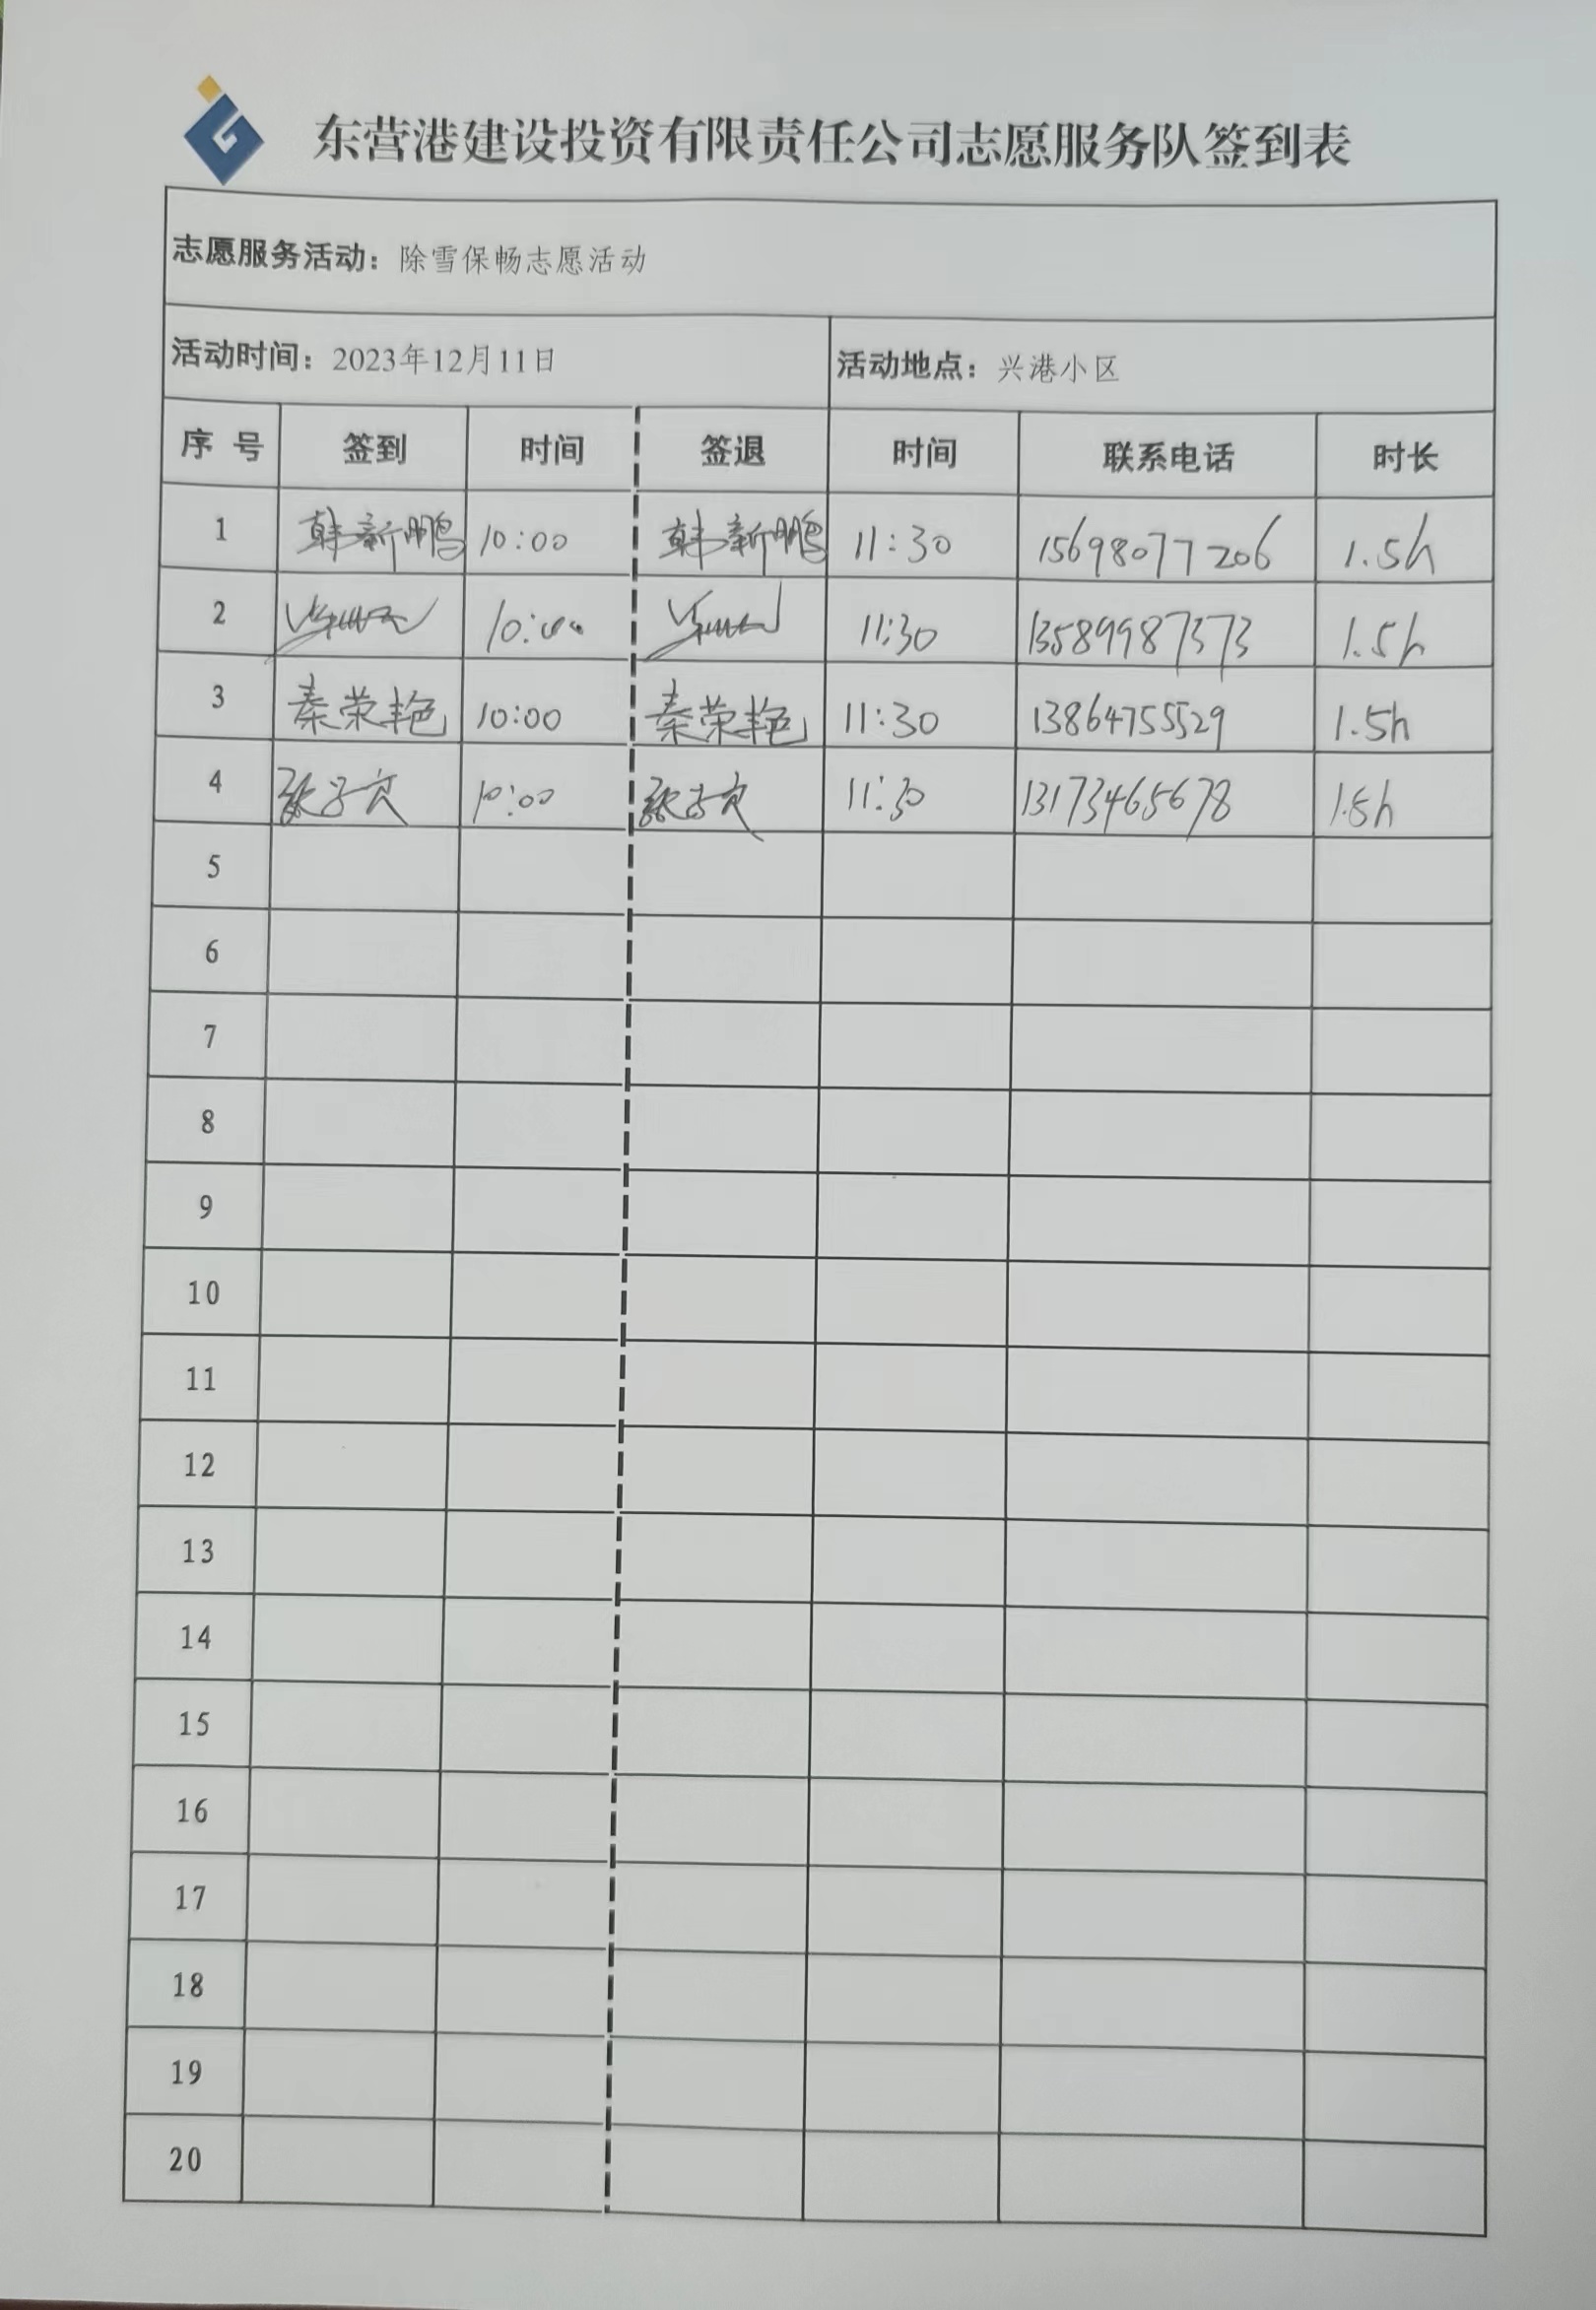 东营港建设投资有限责任公司志愿服务队签到表
志愿服务活动：除雪保畅志愿活动
活动时间：2023年12月11日 活动地点：兴港小区
序号 签到 时间 签退 时间 联系电话 时长
1 韩新鹏 10:00 韩新鹏 11:30 15698077206 1.5h
2 10:00 11:30 13589987373 1.5h
3 秦荣艳 10:00 秦荣艳 11:30 13864755529 1.5h
4 张子 10:00 张子 11:30 13173465678 1.5h
5
6
7
8
9
10
11
12
13
14
15
16
17
18
19
20